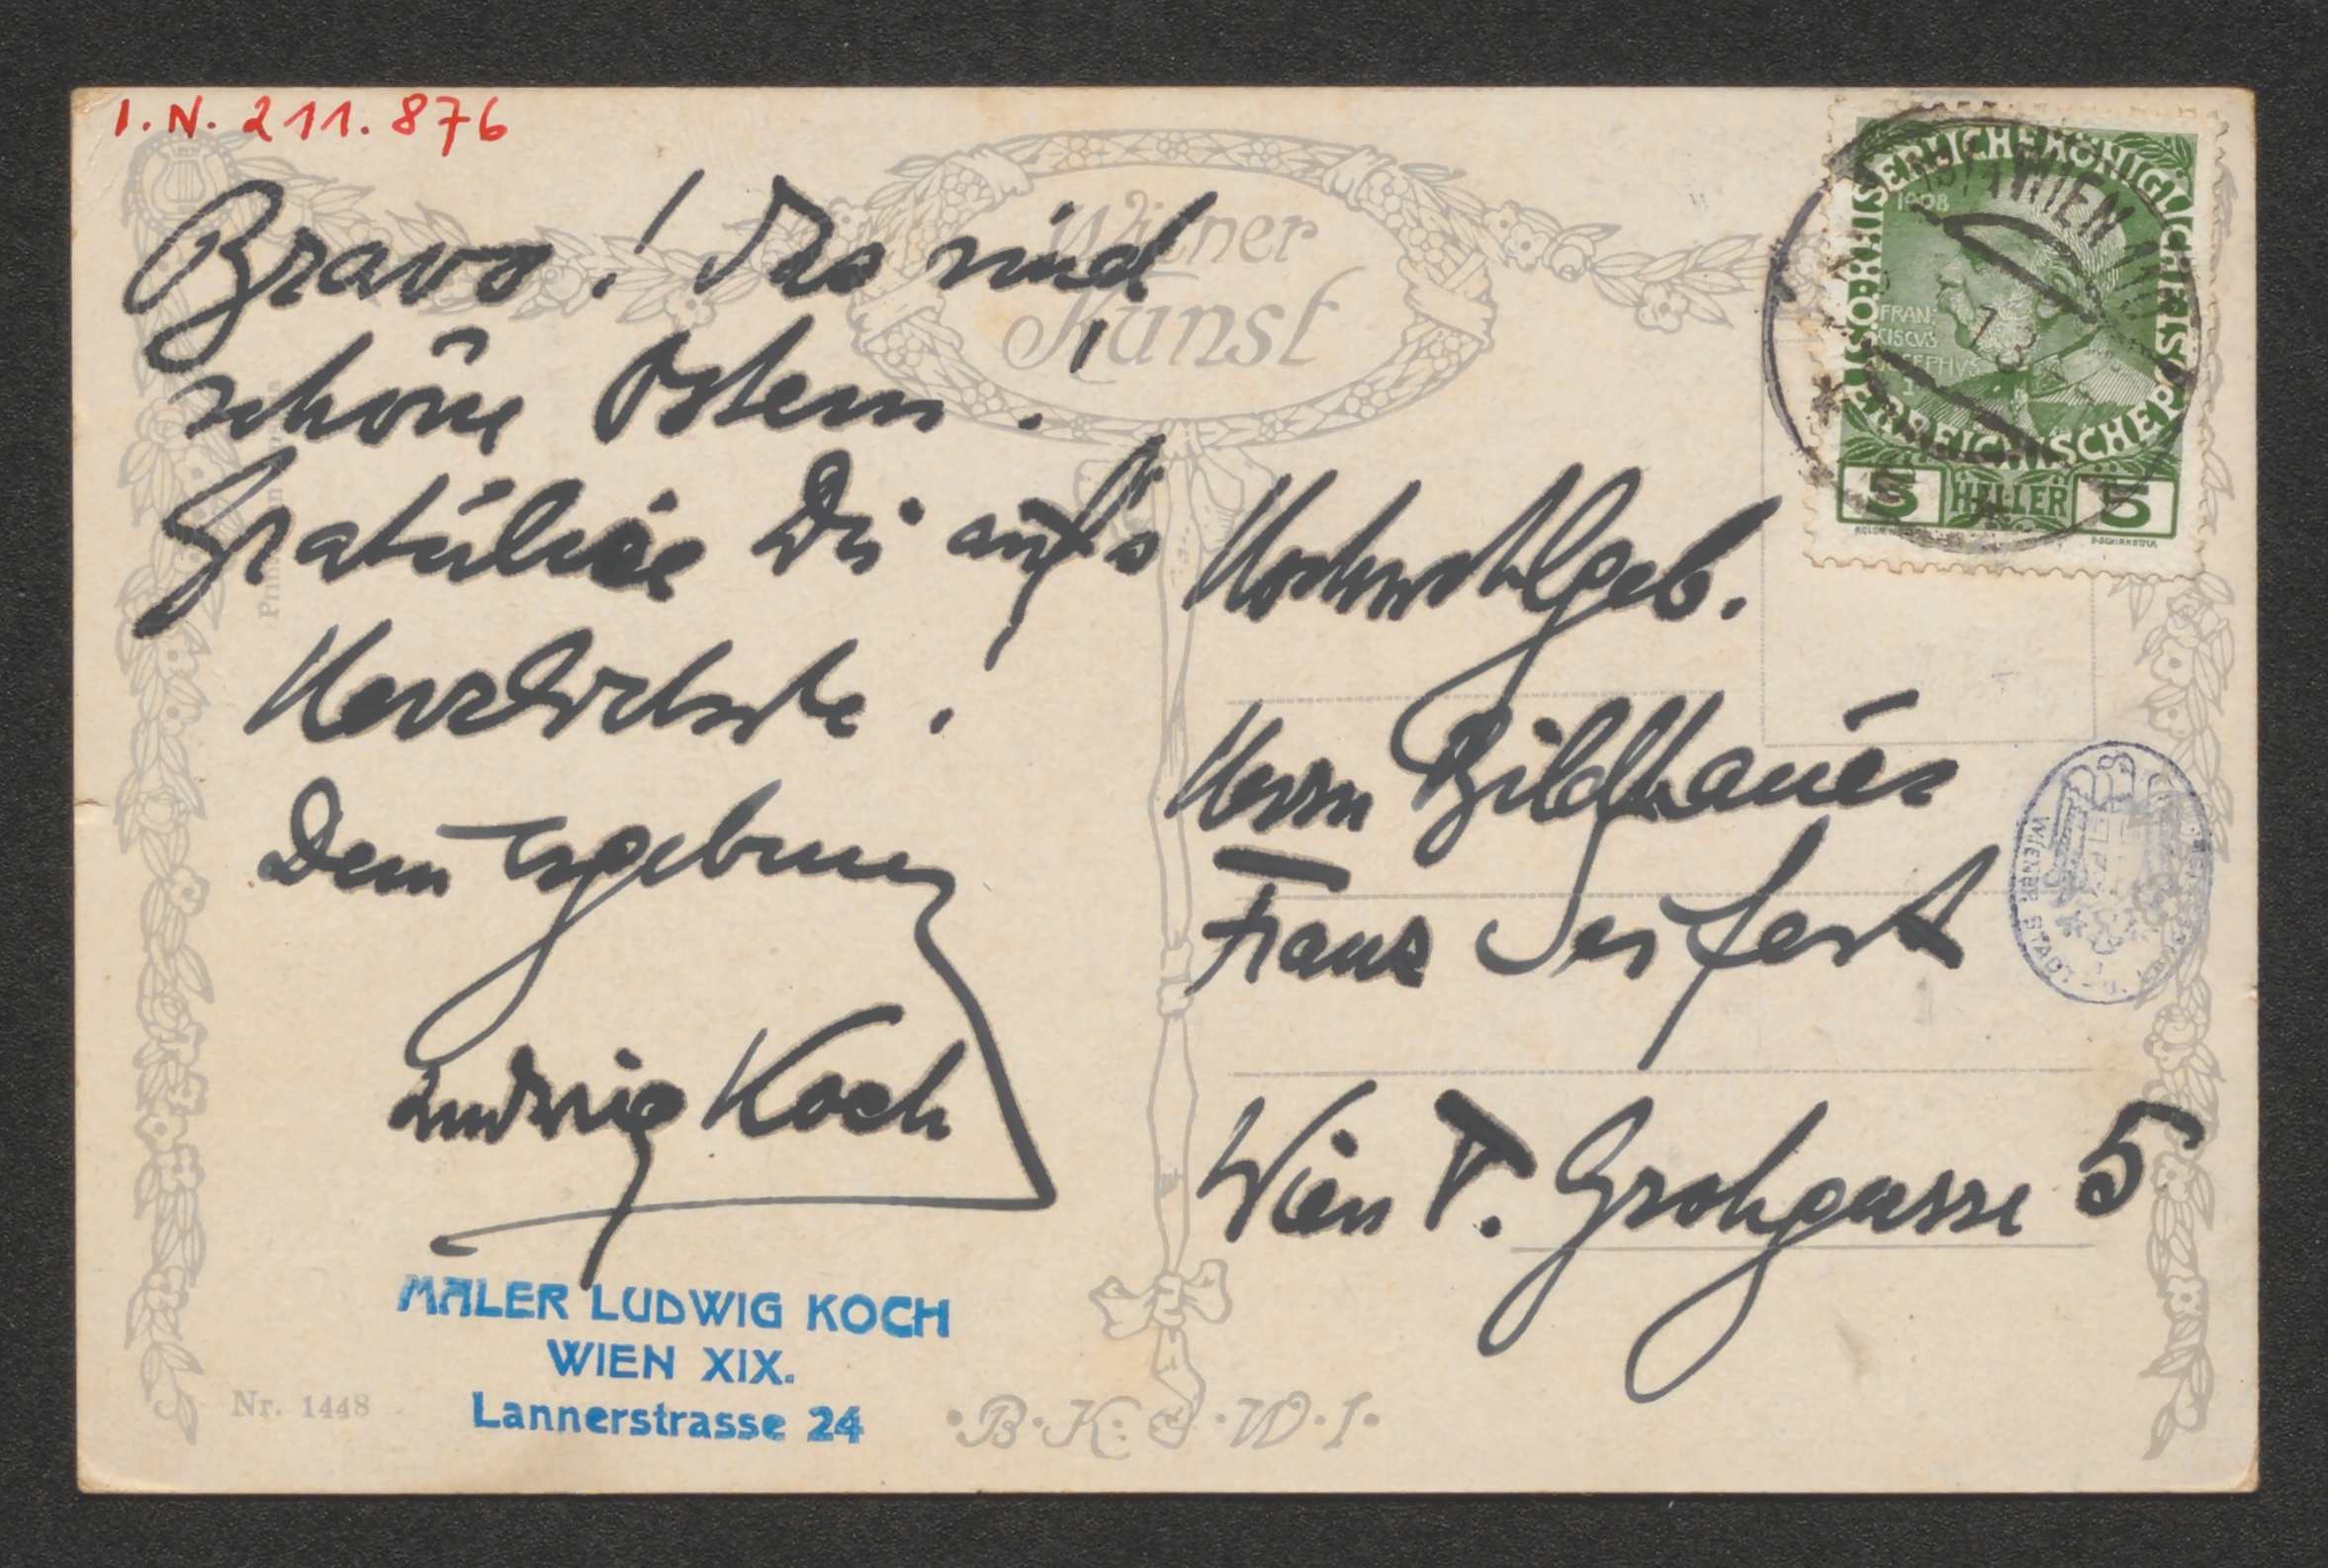 I.N. 211.876
Wiener
Kunst
Bravo! Das sind
schöne Ostern!
Gratuliere Dir auf's
Herzlichste!
Dein ergebener
Ludwig Koch
MALER LUDWIG KOCH
WIEN XIX.
Lannerstrasse 24
Nr. 1448
B. K. W. I.
KAISERLICHE KÖNIGLICHE ÖSTERREICHISCHE POST
1908
FRAN
CISCVS
IOSEPHVS
I
5 HELLER 5
WIEN
13
Hochwohlgeb.
Herrn Bildhauer
Franz Seifert
Wien V. Grohgasse 5
WIENER STADT